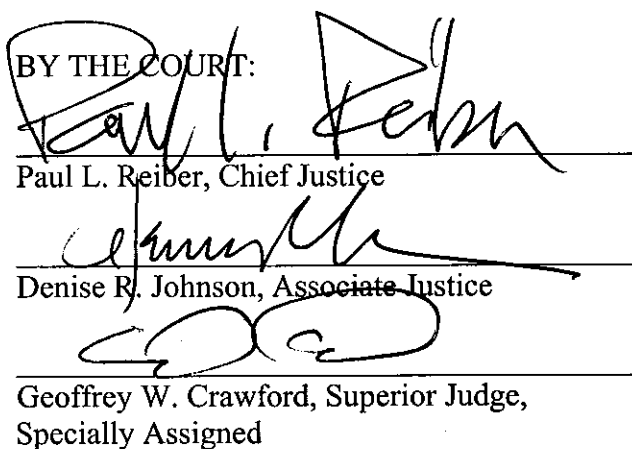 BY THE COURT:
Paul L. Reiber
Paul L. Reiber, Chief Justice
Denise R. Johnson, Associate Justice
Geoffrey W. Crawford, Superior Judge,
Specially Assigned